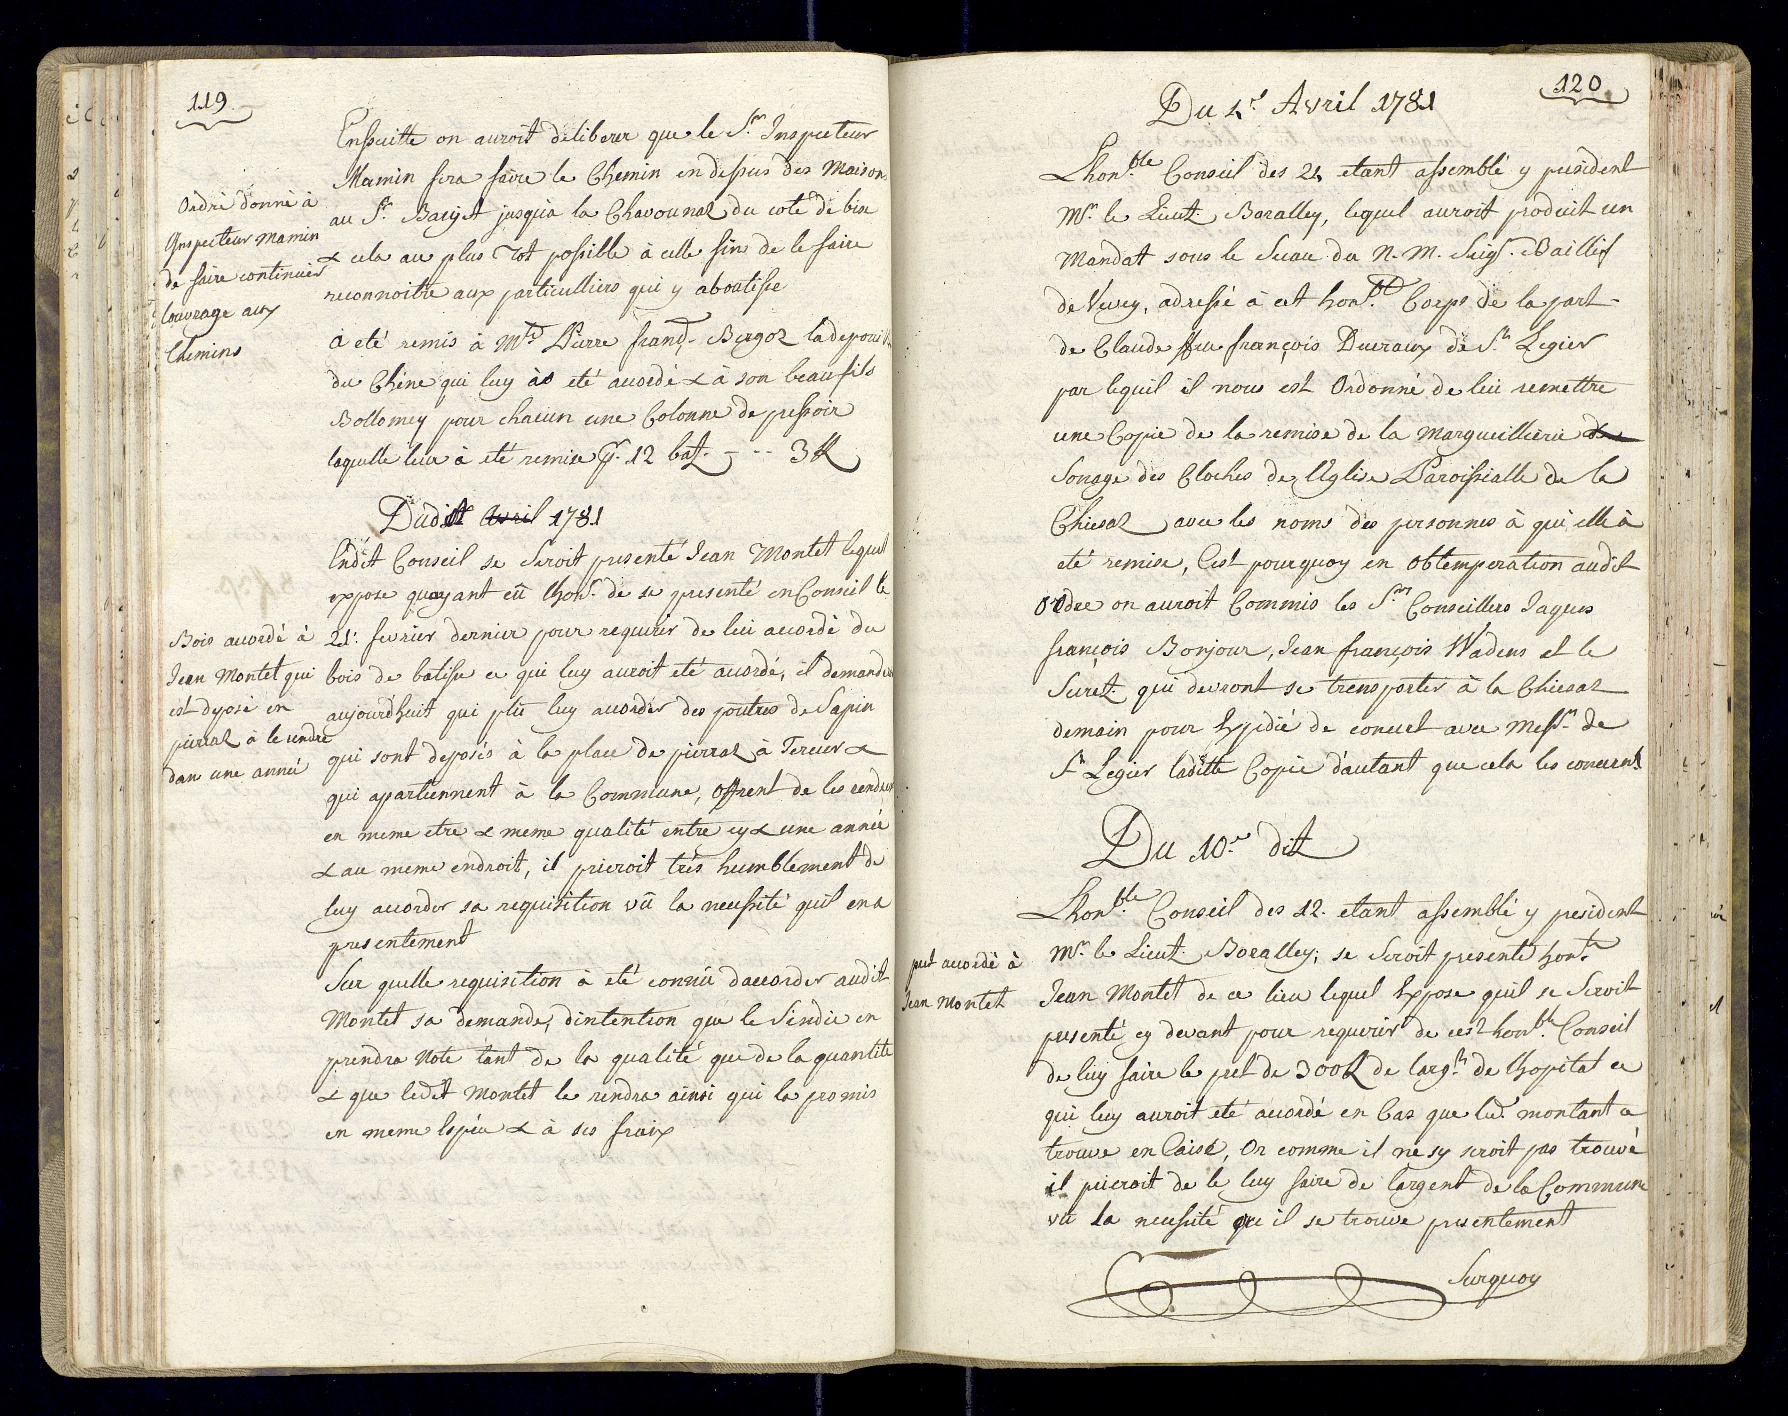 119
Ensuitte on auroit deliberer que le S.r Inspecteur
Mamin fera faire le Chemin en dessus des Maisons
au S.r jusqu'a la Chavounaz du coté de bise
& cela au plus Tot possible à celle fin de le faire
reconnoitre aux particulliers qui y aboutisse
Ordre donné à
Inspecteur Mamin
de faire continuer
louvrage aux
Chemins
a eté remis à M.e Pierre franç.s la depouille
du Chêne qui luy à eté acordé & à son beaufils
Bollomey pour chacun une Colonne de pressoir
laquelle leur à eté remise p.r 12 bat. - - - 3 ff
Dudit Avril 1781
Endit Conseil se Seroit presenté Jean Montet lequel
expose quayant eû lhon.r de se presenté en Conseil le
21: fevrier dernier pour requerir de lui acordé du
bois de batisse ce qui luy auroit eté acordé, il demande
aujourdhuit qui plû luy acorder des poutres de Sapin
qui sont deposés à la place de pierraz à Tercier &
qui apartiennent à la Commune, Offrent de les rendre
en meme etre & meme qualité entre cy & une année
& au meme endroit, il prieroit très humblement de
luy acorder sa requisition vû la necessité quil en a
presentement
Bois acordé à
Jean Montet qui
est deposé en
pierraz à le rendre
dan une année
Sur quelle requisition à eté connû dacorder audit
Montet sa demande, dintention que le Sindic en
prendra Note tant de la qualité que de la quantite
& que ledit Montet le rendra ainsi qui la promis
en meme Espéce & à ses fraix
120
Du 4.e Avril 1781
Lhon.ble Conseil des 24 etant assemblé y president
M.r le Lieut. Boralley, lequel auroit produit un
Mandat sous le Seau du N. M. Seig.r Baillif
de Vevey, adressé à cet hon.ble Corps de la part
de Claude ffeu françois Ducraux de S.t Legier
par lequil il nous est Ordonné de lui remettre
une Copie de la remise de la Margueillerie de
Sonage des Cloches de l'Eglise Paroissialle de la
Chiesaz avec les noms des personnes à qui elle à
eté remise, C'est pourquoy en Obtemperation audit
Ordre on auroit Commis les S.rs Conseillers Jaques
françois Bonjour, Jean françois Wadens et le
Secret. qui devront se transporter à la Chiesaz
demain pour Expidié de concert avec Mess.rs de
S.t Legier laditte Copie d'autant que cela les concerne
Du 10.e dit
Lhon.ble Conseil des 12. etant assemblé y president
M.r le Lieut. Boralley; se Seroit presenté hon.te
Jean Montet de ce lieu lequel Expose quil se Seroit
presenté cy devant pour requerir de cest hon.ble Conseil
de luy faire le pret de 300 ff de larg.t de lhopital ce
qui luy auroit eté acordé en Cas que led. montant ce
trouve en Caise, Or comme il ne sy seroit pas trouvé
il prieroit de le luy faire de largent de la Commune
vû la necessité que il se trouve presentement
pret acordé à
Jean Montet
Surquoy